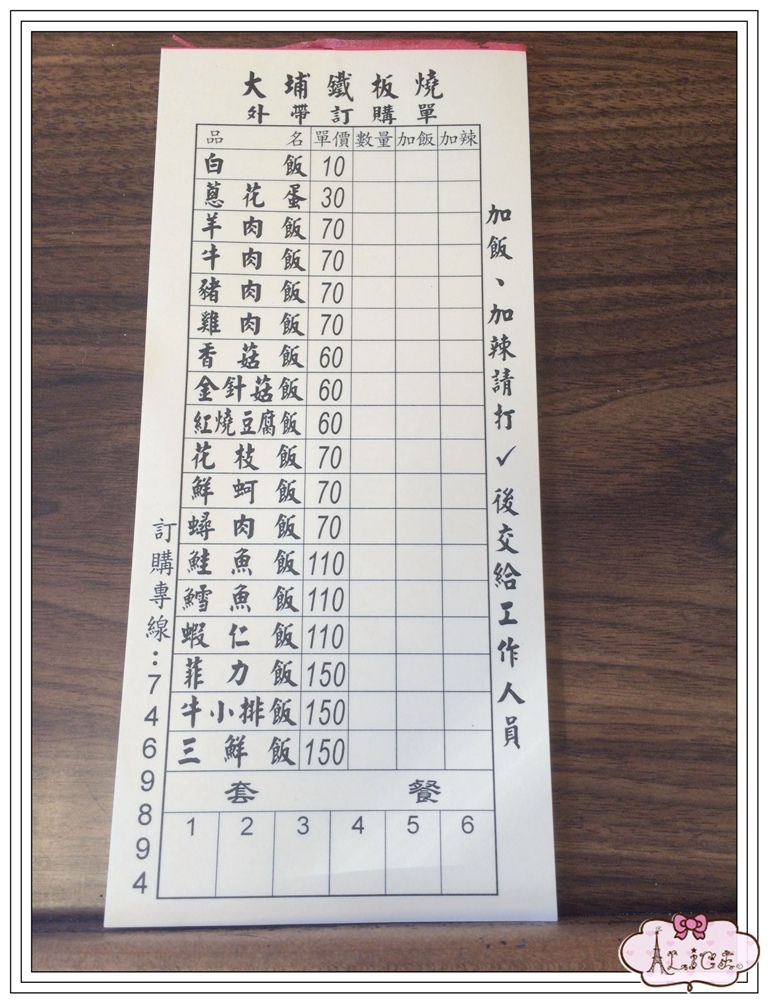 大埔鐵板燒
外帶訂購單
品名 單價 數量 加飯 加辣
白飯 10
蔥花蛋 30
羊肉飯 70
牛肉飯 70
豬肉飯 70
雞肉飯 70
香菇飯 60
金針菇飯 60
紅燒豆腐飯 60
花枝飯 70
鮮蚵飯 70
蟳肉飯 70
鮭魚飯 110
鱈魚飯 110
蝦仁飯 110
菲力飯 150
牛小排飯 150
三鮮飯 150
套餐
1 2 3 4 5 6
加飯、加辣請打✓後交給工作人員
訂購專線:7469894
ALICE.